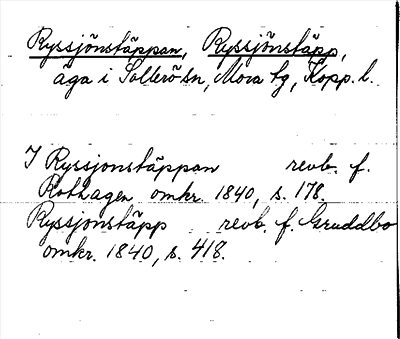 Ryssjönstäppan, Ryssjönstäpp,
äga i Sollerö sn, Mora tg, Kopp. l.
I Ryssjonstäppan revb. f.
Rothagen omkr. 1840, s. 178.
Ryssjonstäpp revb. f. Gruddbo
omkr. 1840, s. 418.